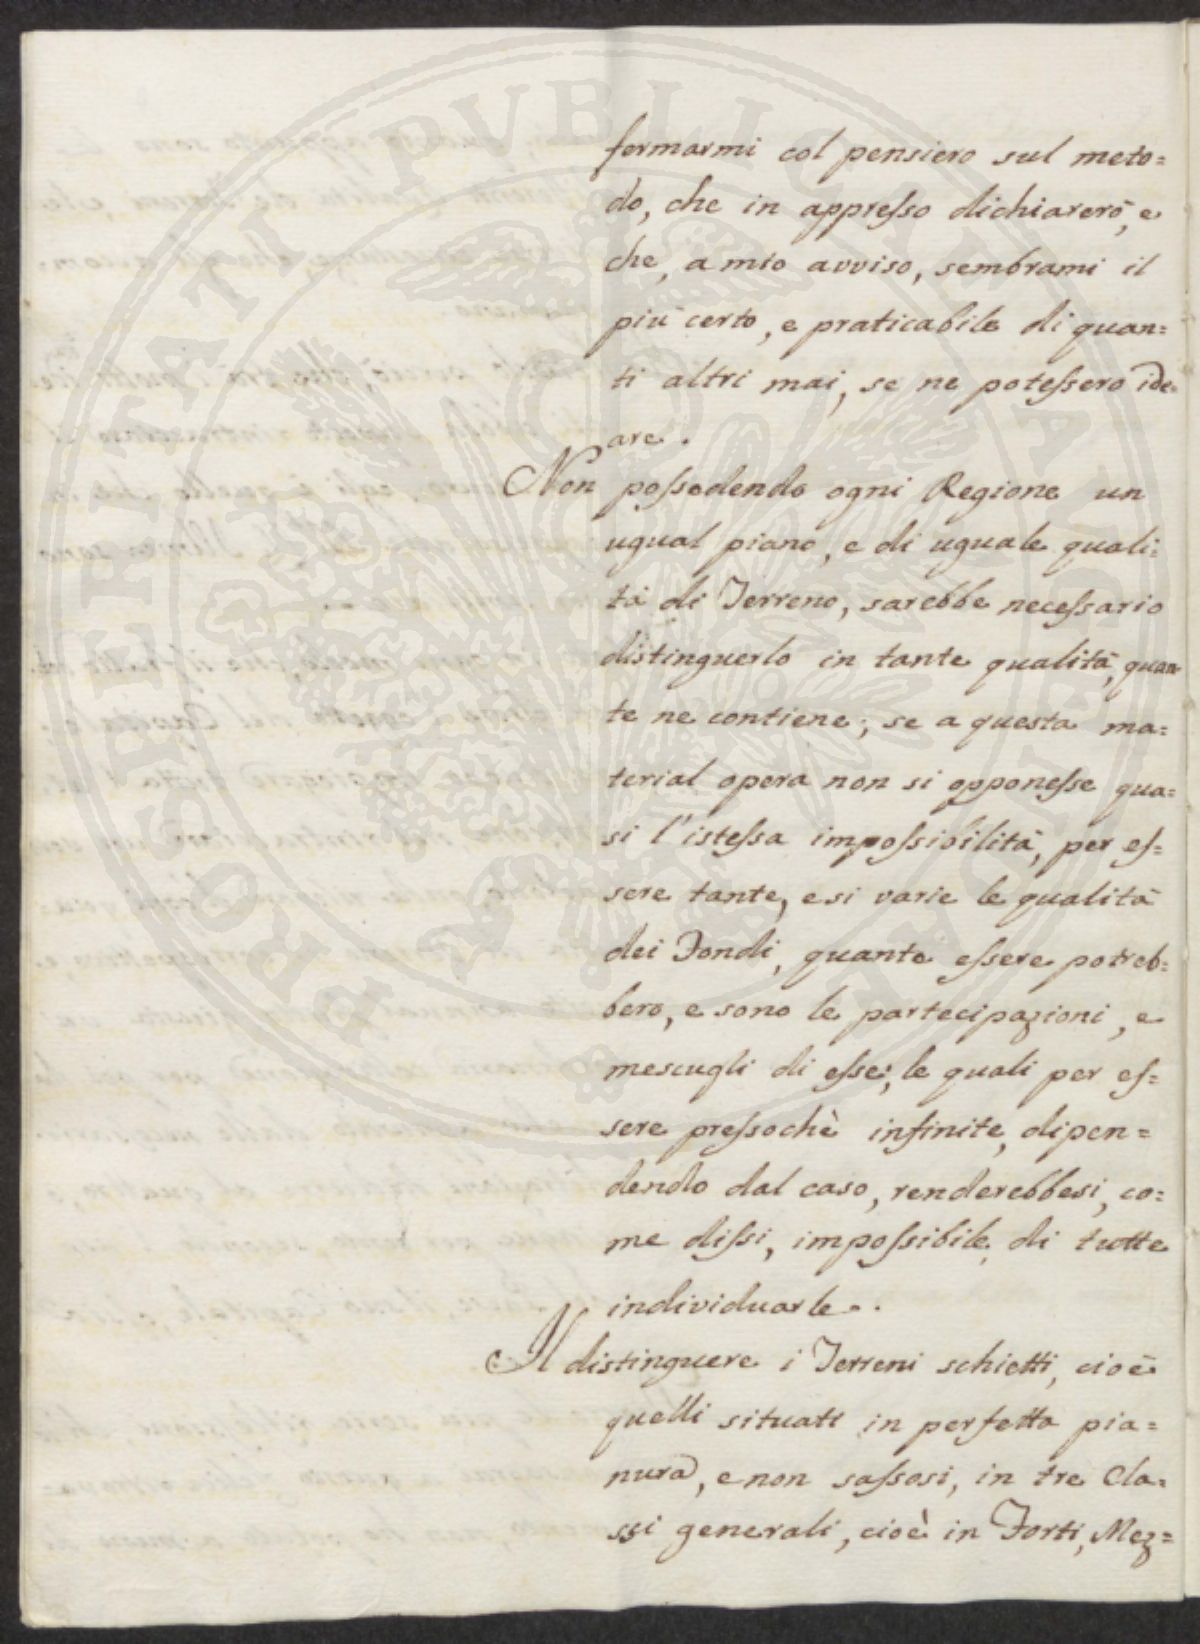 fermarmi col pensiero sul meto=
do, che in appresso dichiarerò, e
che, a mio avviso, sembrami il
più certo, e praticabile di quan=
ti altri mai, se ne potessero ide=
are.
Non possedendo ogni Regione un
ugual piano, e di uguale quali=
tà di Terreno, sarebbe necessario
distinguerlo in tante qualità, quan=
te ne contiene; se a questa ma=
terial opera non si opponesse qua=
si l'istessa impossibilità, per es=
sere tante, e si varie le qualità
dei Fondi, quante essere potreb=
bero, e sono le partecipazioni, e
mescugli di esse; le quali per es=
sere pressochè infinite, dipen=
dendo dal caso, renderebbesi, co=
me dissi, impossibile, di tutte
individuarle.
Il distinguere i Terreni schietti, cioè
quelli situati in perfetta pia=
nura, e non sassosi, in tre Cla=
ssi generali, cioè in Forti, Mez=
PROSPERITATI PVBLICAE AVGENDAE